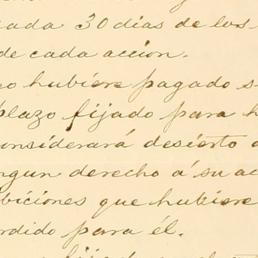 ada 30 dias de los
de cada acción.
o hubiere pagado s
plazo fijado para h
onsiderará desierto
ngun derecho á su ac
biciones que hubiere
rdido para él.